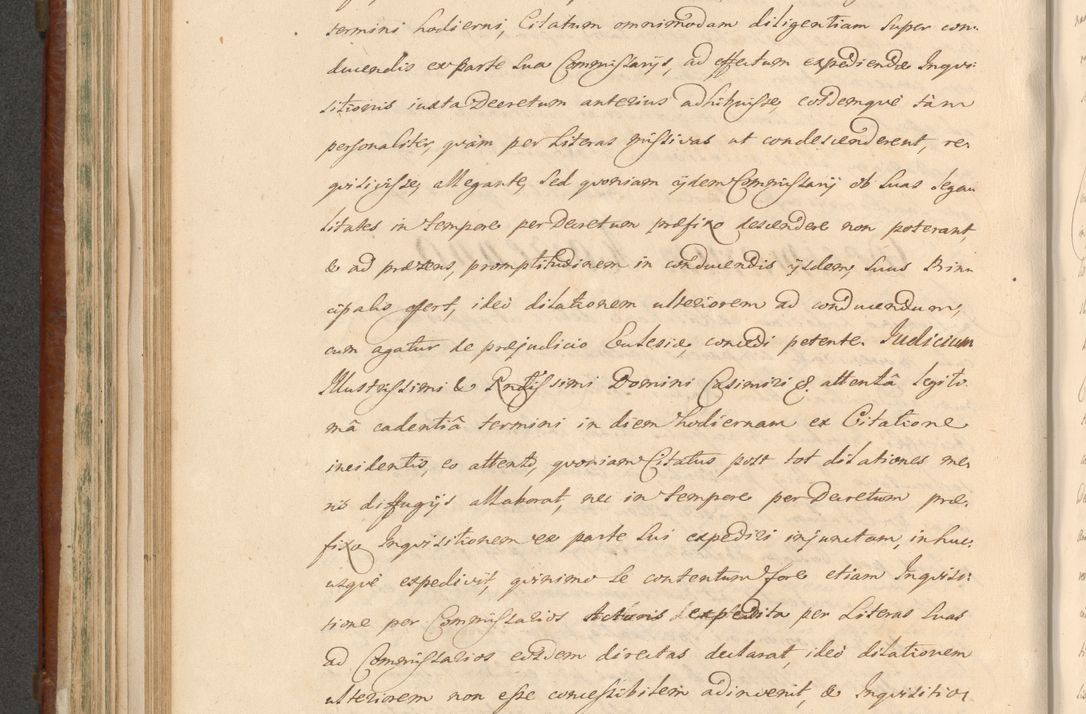 termini hodierni, Citatum omnimodam diligentiam super con:
ducendis ex parte sua Commissarijs, ad effectum expediendæ Inqvi:
sitionis iuxta Decretum anterius adhibuisse, eosdemqve tàm
personaliter, qvàm per Literas missivas ut condescenderent, re:
qvisivisse, allegante, Sed qvoniam ijdem Commissarij ob suas legali
litates in tempore per Decretum præfixo descendere non poterant,
& ad præsens, promptitudinem in conducendis ijsdem, suus Prin:
cipalis offert, ideò dilationem ulteriorem ad conducendum,
cum agatur de præjudicio Ecclesiæ, concedi petente. Judicium
Illustrissimi & Rndissimi Domini Casimiri &. attentâ legiti:
mâ cadentiâ termini in diem hodiernam ex Citatione
incidentis, eo attento, qvoniam Citatus post tot dilationes me:
ris diffugijs allaborat, nec in tempore per Decretum præ:
fixo Inqvisitionem ex parte sui expediri injunctam, inhuc:
usqve expedivit, qvinimo se contentum fore etiam Inqvisi:
tione per Commissarios Actoris expedita per Literas suas
ad Commissarios eosdem directas declarat, ideò dilationem
ulteriorem non esse concessibilem adinvenit, & Inqvisitio: